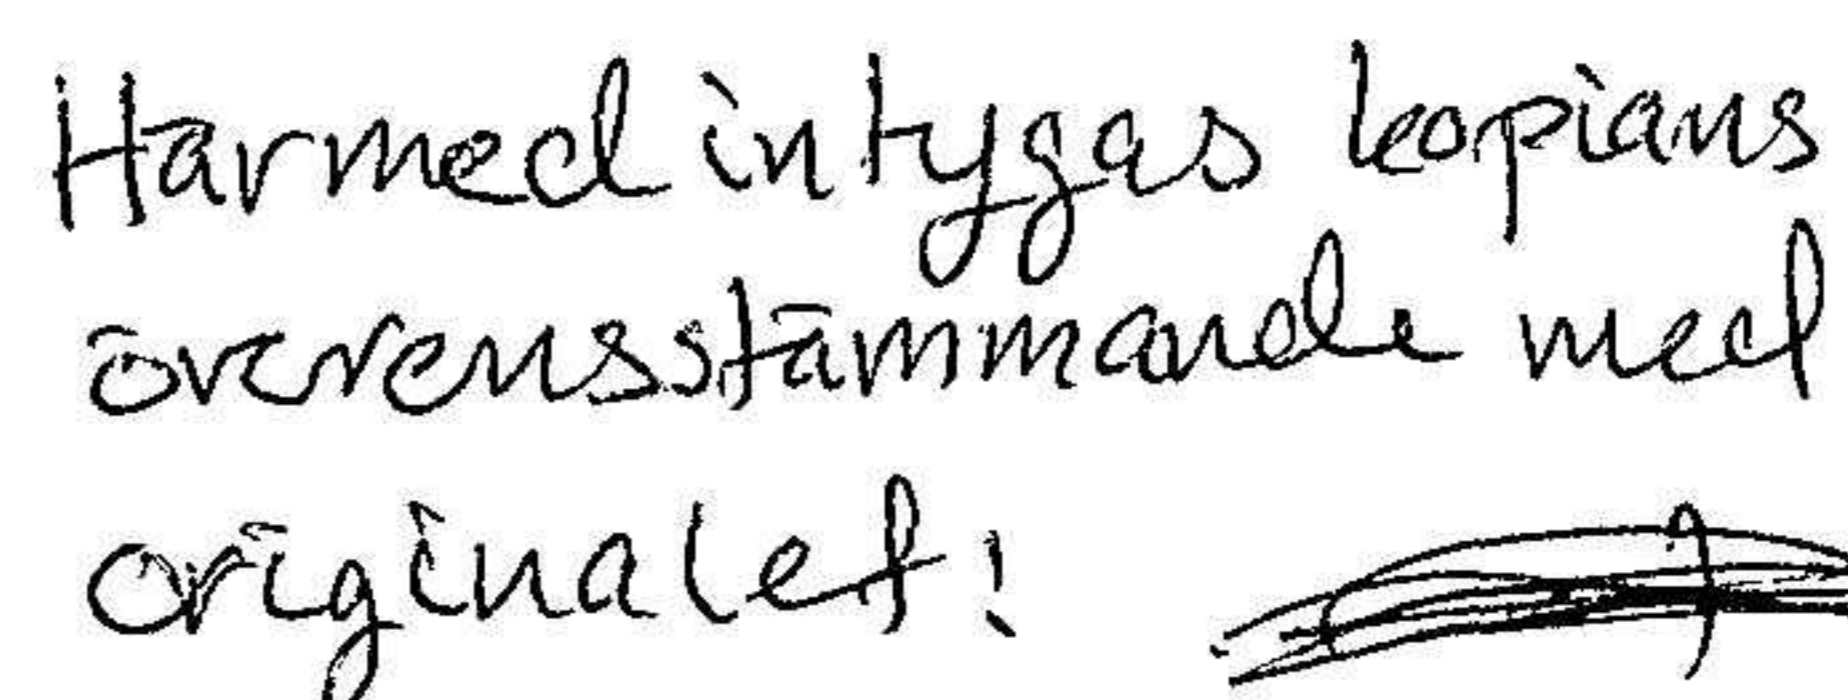 Härmed intygas kopians
överensstämmande med
originalet!